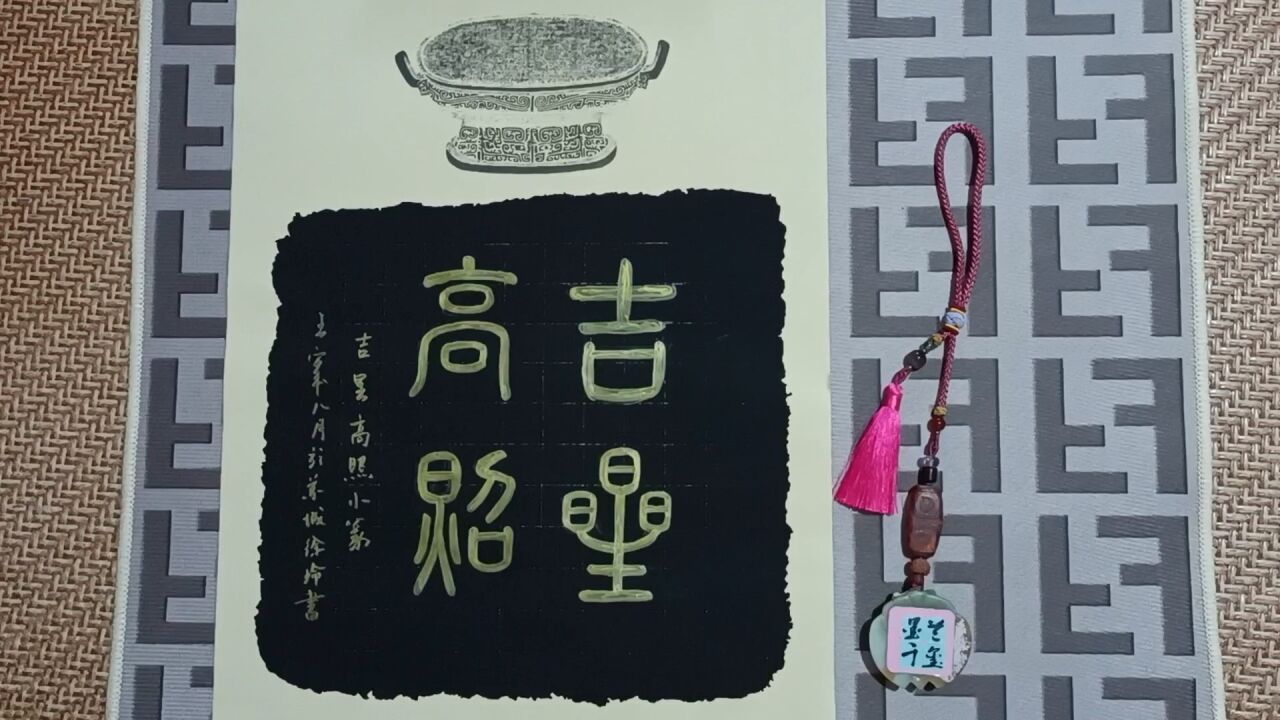 吉星
高照
吉星高照小篆
壬寅年八月於苏城徐玲書